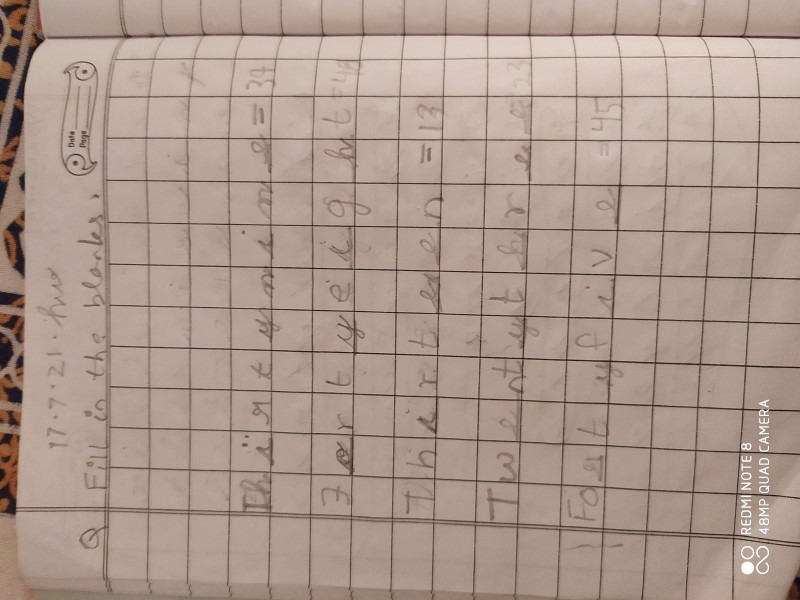 17.7.21. hw
Date
Page
Q Fill in the blanks.
Thirtynine = 39
Fortyeight = 48
thirteen = 13
Twentythree = 23
Fortyfive = 45
REDMI NOTE 8
48MP QUAD CAMERA